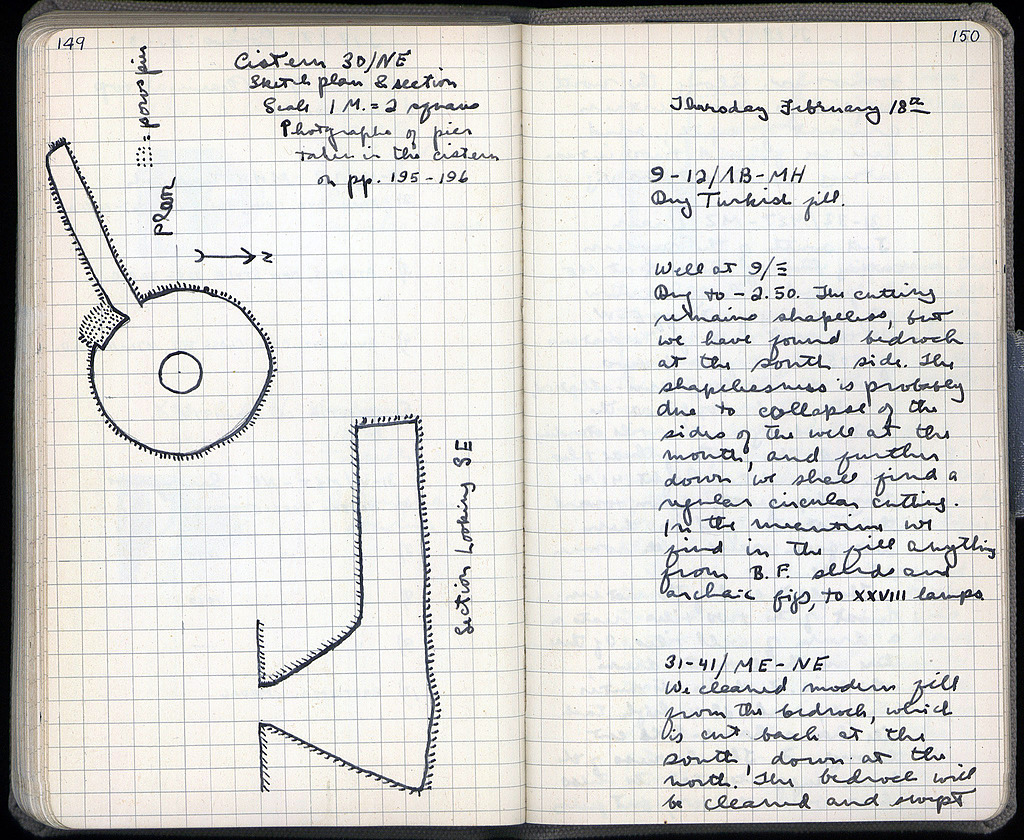 149
Cistern 30/NE
Sketch plan & section
Scale 1 M. = 2 squares
Photographs of pier
taken in the cistern
on pp. 195-196
= poros pier
Plan
N
Section Looking SE
150
Thursday February 18th
9-12/ΛB-MH
Dug Turkish fill.
Well at 9/Ξ
Dug to -2.50. The cutting
remains shapeless, but
we have found bedrock
at the south side. The
shapelessness is probably
due to collapse of the
sides of the well at the
mouth, and further
down we shall find a
regular circular cutting.
In the meantime we
find in the fill anything
from B.F. sherds and
archaic figs, to XXVIII lamps.
31-41/ME-NE
We cleaned modern fill
from the bedrock, which
is cut back at the
south, down at the
north. The bedrock will
be cleaned and swept